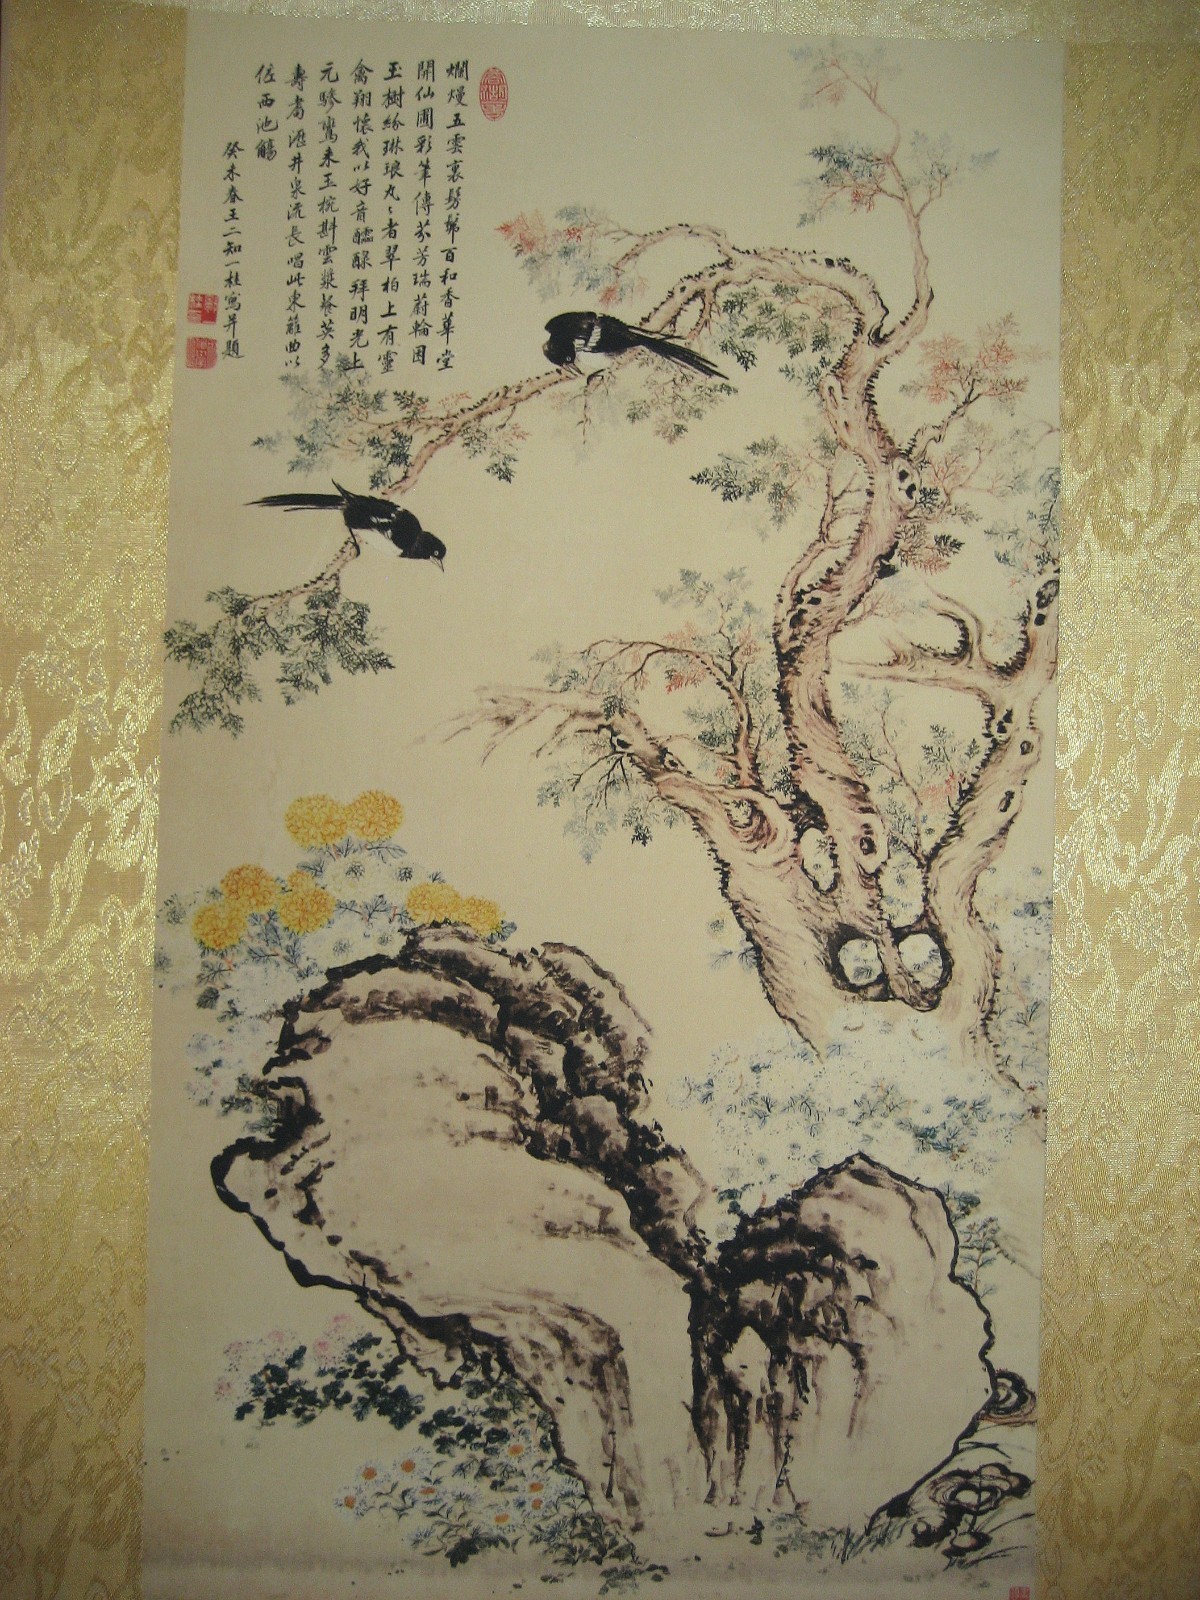 爛熳五雲裏髣髴百和香華堂
開仙圃彩筆傳芬芳瑞蔚輪囷
玉樹紛琳琅丸〻者翠柏上有靈
禽翔懷我以好音醽醁拜明光上
元驂鸞來玉椀斟雲漿餐英多
壽耈潀井泉流長唱此東籬曲以
佐西池觴
癸未春王二知一桂寫并題